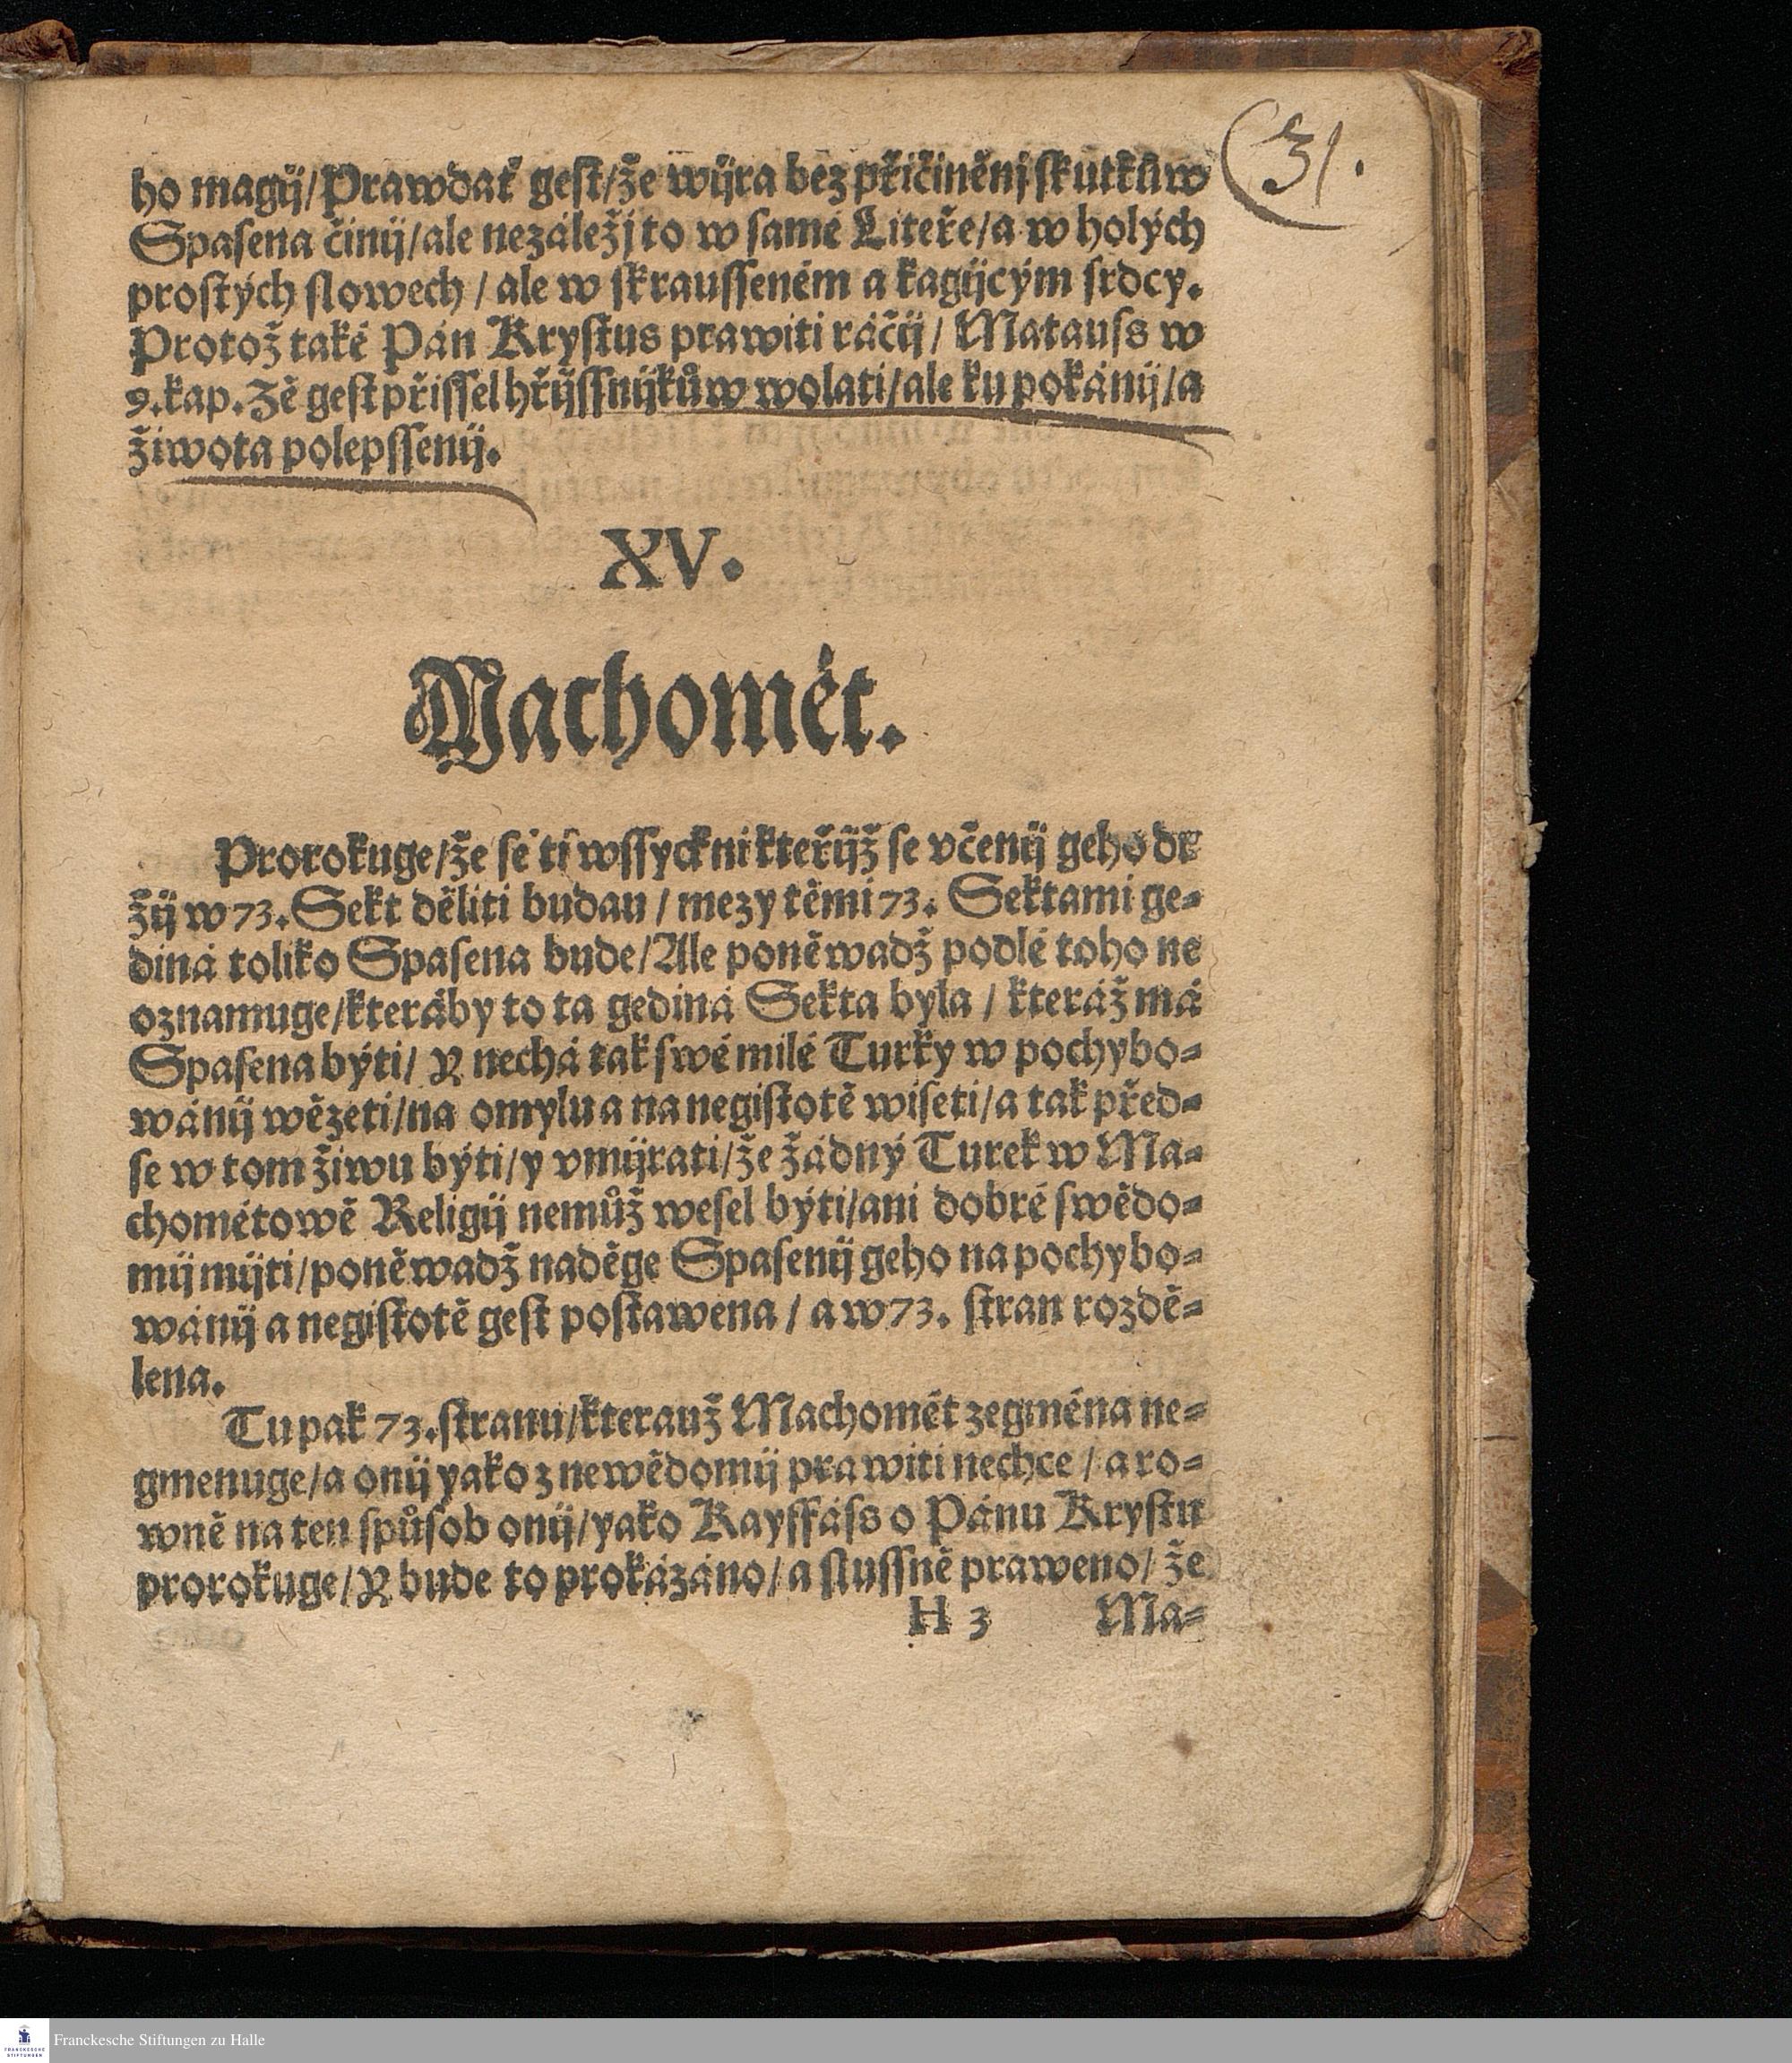 31.
ho magij/Prawdať gest/že wijra bez přičiněnj skutkůw
Spasena činij/ale nezáležj to w samé Liteře/a w holých
prostých slowech/ale w skrausseném a kagijcým srdcy.
Protož také Pán Krystus prawiti ráčij/Matauss w
9.kap.Zě gest přissel hřijssnijkůw wolati/ale ku pokánij/a
žiwota polepssenij.
XV.
Machomét.
Prorokuge/že se ti wssyckni kteřijž se včenij geho dr
žij w 73. Sekt děliti budau/mezy těmi 73. Sektami ge⸗
diná toliko Spasena bude/Ale poněwadž podlé toho ne
oznamuge/kteráby to ta gediná Sekta byla/kteráž má
Spasena býti/ Y nechá tak swé milé Turky w pochybo⸗
wánij wězeti/na omylu a na negistotě wiseti/a tak před⸗
se w tom žiwu býti/y vmijrati/že žádný Turek w Ma⸗
chométowě Religij nemůž wesel býti/ani dobré swědo⸗
mij mijti/poněwadž naděge Spasenij geho na pochybo⸗
wánij a negistotě gest postawena/a w 73. stran rozdě⸗
lena.
Tu pak 73.stranu/kterauž Machomét zegména ne⸗
gmenuge/a onij yako z newědomij prawiti nechce/a ro⸗
wně na ten spůsob onij/yako Kayffáss o Pánu Krystu
prorokuge/Y bude to prokázáno/a slussně praweno/že
H 3 Ma⸗
Franckesche Stiftungen zu Halle
FRANCKESCHE
STIFTUNGEN